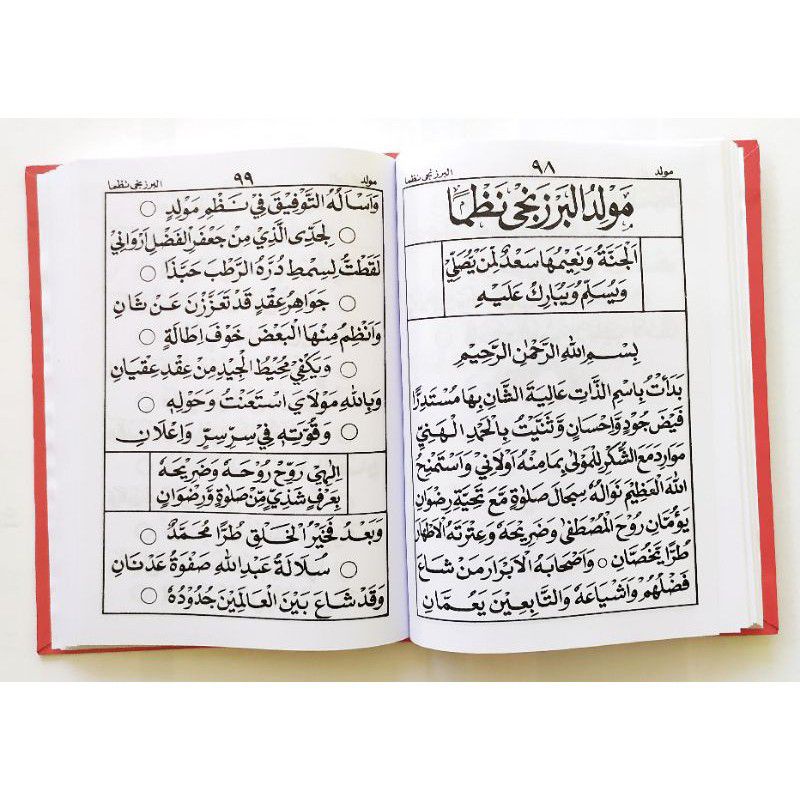 مولد ٩٨ البرزنجى نظما
مَوْلِدُ الْبَرْزَنْجِىْ نَظْمًا
اَلْجَنَّةُ وَنَعِيْمُهَا سَعْدٌ لِمَنْ يُصَلِّيْ
وَيُسَلِّمُ وَيُبَارِكُ عَلَيْهِ
بِسْمِ اللهِ الرَّحْمٰنِ الرَّحِيْمِ
بَدَأْتُ بِاسْمِ الذَّاتِ عَالِيَةِ الشَّانِ بِهَا مُسْتَدِرًّا
فَيْضَ جُوْدٍ وَّاِحْسَانٍ وَثَنَّيْتُ بِالْحَمْدِ الْهَنِيِّ
مَوَارِدَ مَعَ الشُّكْرِ لِلْمَوْلَى بِمَا مِنْهُ اَوْلَانِيْ وَاَسْتَمْنِحُ
اللهَ الْعَظِيْمَ نَوَالَهُ سِجَالَ صَلَاةٍ مَّعَ تَحِيَّةِ رِضْوَانٍ
يَؤُمَّانِ رُوْحَ الْمُصْطَفٰى وَضَرِيْحَهُ وَعِتْرَتِهِ الْاَطْهَارَ
طُرًّا يَخُصَّانِ ○ وَاَصْحَابِهِ الْاَبْرَارَ مَنْ شَاعَ
فَضْلُهُمْ وَاَشْيَاعَهُ وَالتَّابِعِيْنَ يَعُمَّانِ
مولد ٩٩ البرزنجى نظما
وَاَسْاَلُهُ التَّوْفِيْقَ فِيْ نَظْمِ مَوْلِدٍ ○
لِجَدِّى الَّذِيْ مِنْ جَعْفَرِ الْفَضْلِ اَرْوَانِيْ ○
لَقَطْتُ لِسِمْطِ دُرَّهُ الرَّطْبَ حَبَّذَا ○
جَوَاهِرُ عِقْدٍ قَدْ تَعَزَّزْنَ عَنْ ثَانِ ○
وَاَنْظِمُ مِنْهَا الْبَعْضَ خَوْفَ اِطَالَةٍ ○
وَيَكْفِيْ مُحِيْطُ الْجِيْدِ مِنْ عِقْدِ عِقْيَانِ ○
وَبِاللهِ مَوْلَايَ اسْتَعَنْتُ وَحَوْلِهِ ○
وَقُوَّتِهِ فِيْ سِرِّ سِرٍّ وَاِعْلَانِ ○
اِلٰهِيْ رَوِّحْ رُوْحَهُ وَضَرِيْحَهُ
بِعَرْفٍ شَذِيٍّ مِّنْ صَلَاةٍ وَّرِضْوَانِ
وَبَعْدُ فَخَيْرُ الْخَلْقِ طُرًّا مُحَمَّدٌ ○
سُلَالَةُ عَبْدِ اللهِ صَفْوَةُ عَدْنَانِ ○
وَقَدْ شَاعَ بَيْنَ الْعَالَمِيْنَ جُدُوْدُهُ ○